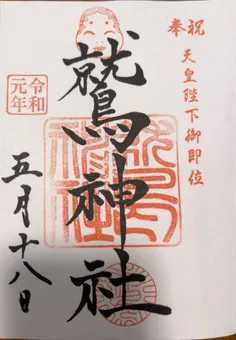 奉祝
天皇陛下御即位
鷲神社
令和
元年
五月十八日